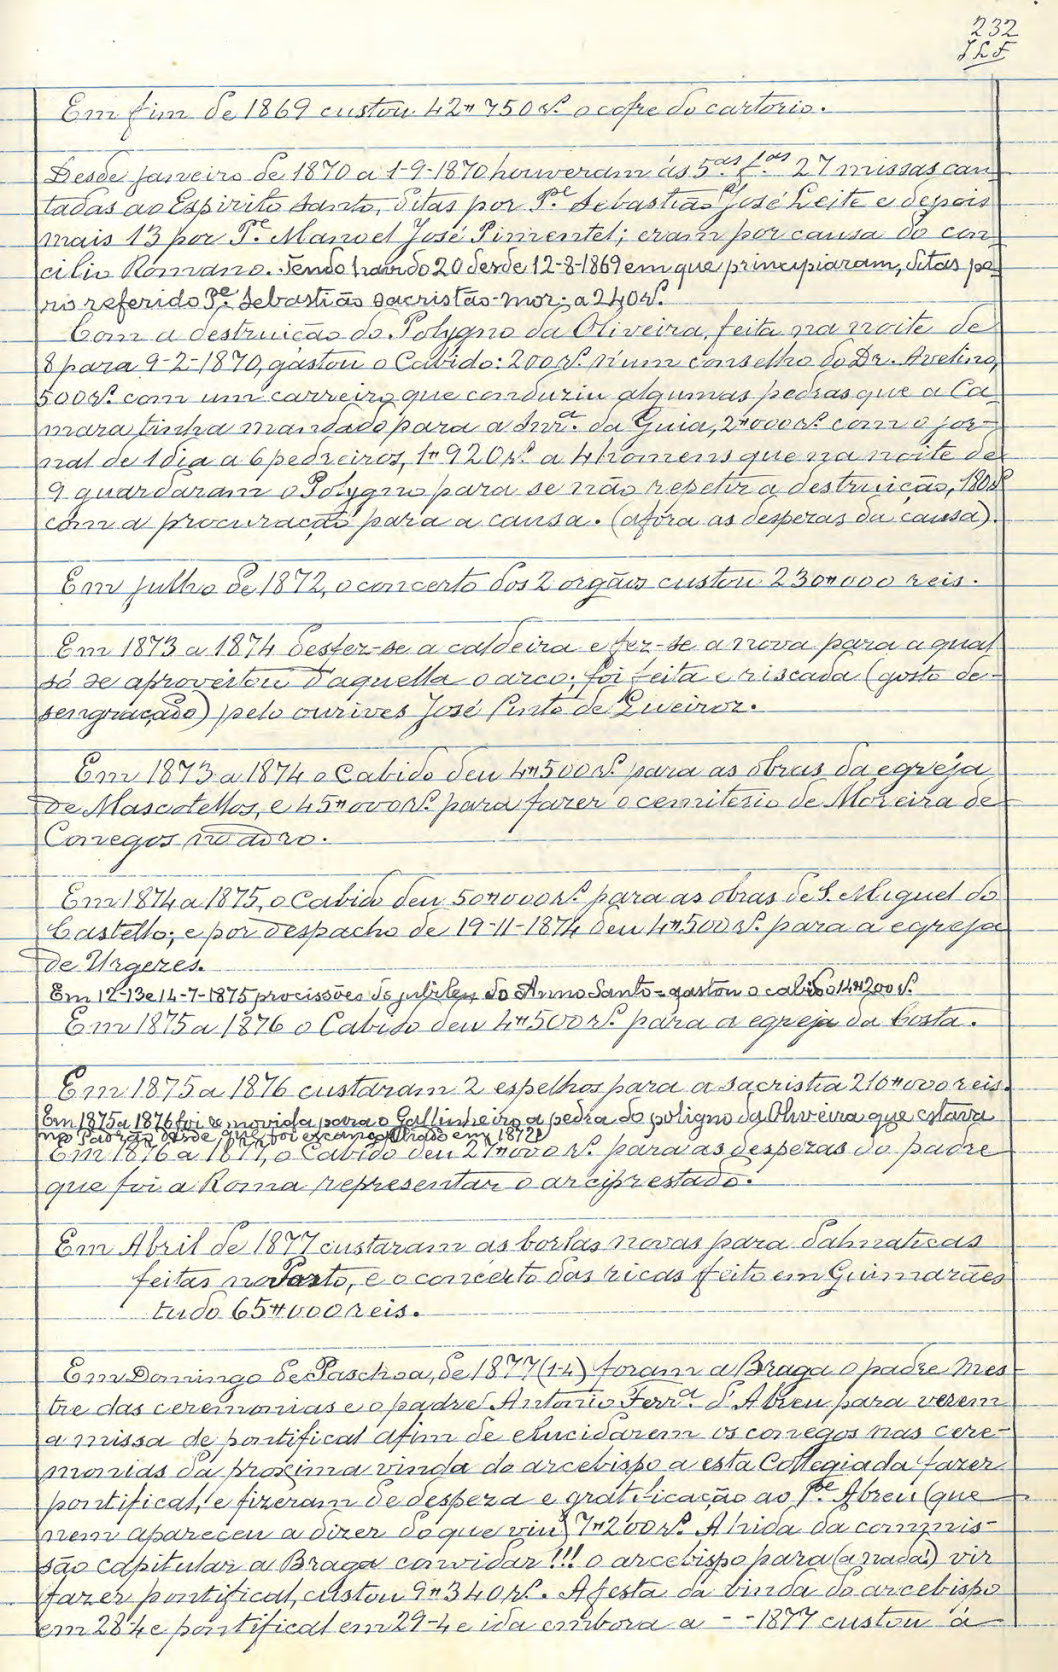 232
JLF
Em fim de 1869 custou 42#750 rs. o cofre do cartorio.
Desde janeiro de 1870 a 1-9-1870 houveram ás 5.as f.as 27 missas can-
tadas ao Espirito Santo, ditas por P.e Sebastião José Leite e depois
mais 13 por P.e Manoel José Pimentel; eram por causa do con-
cilio Romano. Tendo havido 20 desde 12-8-1869 em que principiaram, ditas pe-
lo referido P.e Sebastião sacristão-mor; a 240 rs.
Com a destruição do Polygno da Oliveira, feita na noite de
8 para 9-2-1870, gastou o Cabido: 200 rs. n'um conselho do Dr. Avelino,
500 rs. com um carreiro que conduziu algumas pedras que a Ca-
mara tinha mandado para a Snr.a da Guia, 2#000 rs. com o jor-
nal de 1 dia a 6 pedreiros, 1#920 rs. a 4 homens que na noite de
9 guardaram o Polygno para se não repetir a destruição, 180 rs.
com a procuração para a causa. (afóra as despezas da causa).
Em julho de 1872, o concerto dos 2 orgãos custou 230#000 reis.
Em 1873 a 1874 desfez-se a caldeira e fez-se a nova para a qual
só se aproveitou d'aquella o arco; foi feita e riscada (gosto de-
sengraçado) pelo ourives José Pinto de Queiroz.
Em 1873 a 1874 o Cabido deu 4#500 rs. para as obras da egreja
de Mascotellos, e 45#000 rs. para fazer o cemiterio de Moreira de
Conegos no adro.
Em 1874 a 1875, o Cabido deu 50#000 rs. para as obras de S. Miguel do
Castello; e por despacho de 19-11-1874 deu 4#500 rs. para a egreja
de Urgezes.
Em 12-13 e 14-7-1875 procissões do jubileu do Anno Santo = gastou o cabido 14#200 rs.
Em 1875 a 1876 o Cabido deu 4#500 rs. para a egreja da Costa.
Em 1875 a 1876 custaram 2 espelhos para a sacristia 210#000 reis.
Em 1875 a 1876 foi removida para o Gallinheiro a pedra do poligno da Oliveira que estava
no Padrão desde que foi escangalhado em 1872
Em 1876 a 1877, o Cabido deu 27#000 rs. para as despezas do padre
que foi a Roma representar o arciprestado.
Em Abril de 1877 custaram as borlas novas para dalmaticas
feitas no Porto, e o concerto das ricas feito em Guimarães
tudo 65#000 reis.
Em Domingo de Paschoa, de 1877 (1-4) foram a Braga o padre Mes-
tre das ceremonias e o padre Antonio Ferr.a d'Abreu para verem
a missa de pontifical afim de elucidarem os conegos nas cere-
monias da proxima vinda do arcebispo a esta Collegiada fazer
pontifical, e fizeram de despeza e gratificação ao P.e Abreu (que
nem apareceu a dizer do que viu) 7#200 rs. A hida da commis-
são capitular a Braga convidar!!! o arcebispo para (a nada!) vir
fazer pontifical, custou 9#340 rs. A festa da vinda do arcebispo
em 28-4 e pontifical em 29-4 e ida embora a - - 1877 custou á